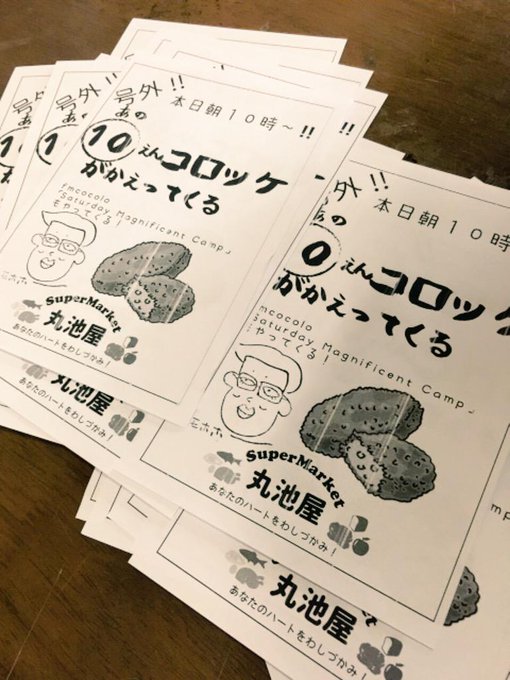 号外!!
本日朝10時〜!!
あの
10えんコロッケ
がかえってくる
fmcocolo
「Saturday Magnificent Camp」
もやってくる!
SuperMarket
丸池屋
あなたのハートをわしづかみ!
外!!
本日朝10時
の
0えんコロッケ
がかえってくる
mcocolo
Saturday Magnificent Camp」
やってくる!
SuperMarket
丸池屋
あなたのハートをわしづかみ!
丸池屋
あなたの
丸池屋
あなたのハートをわしづかみ!